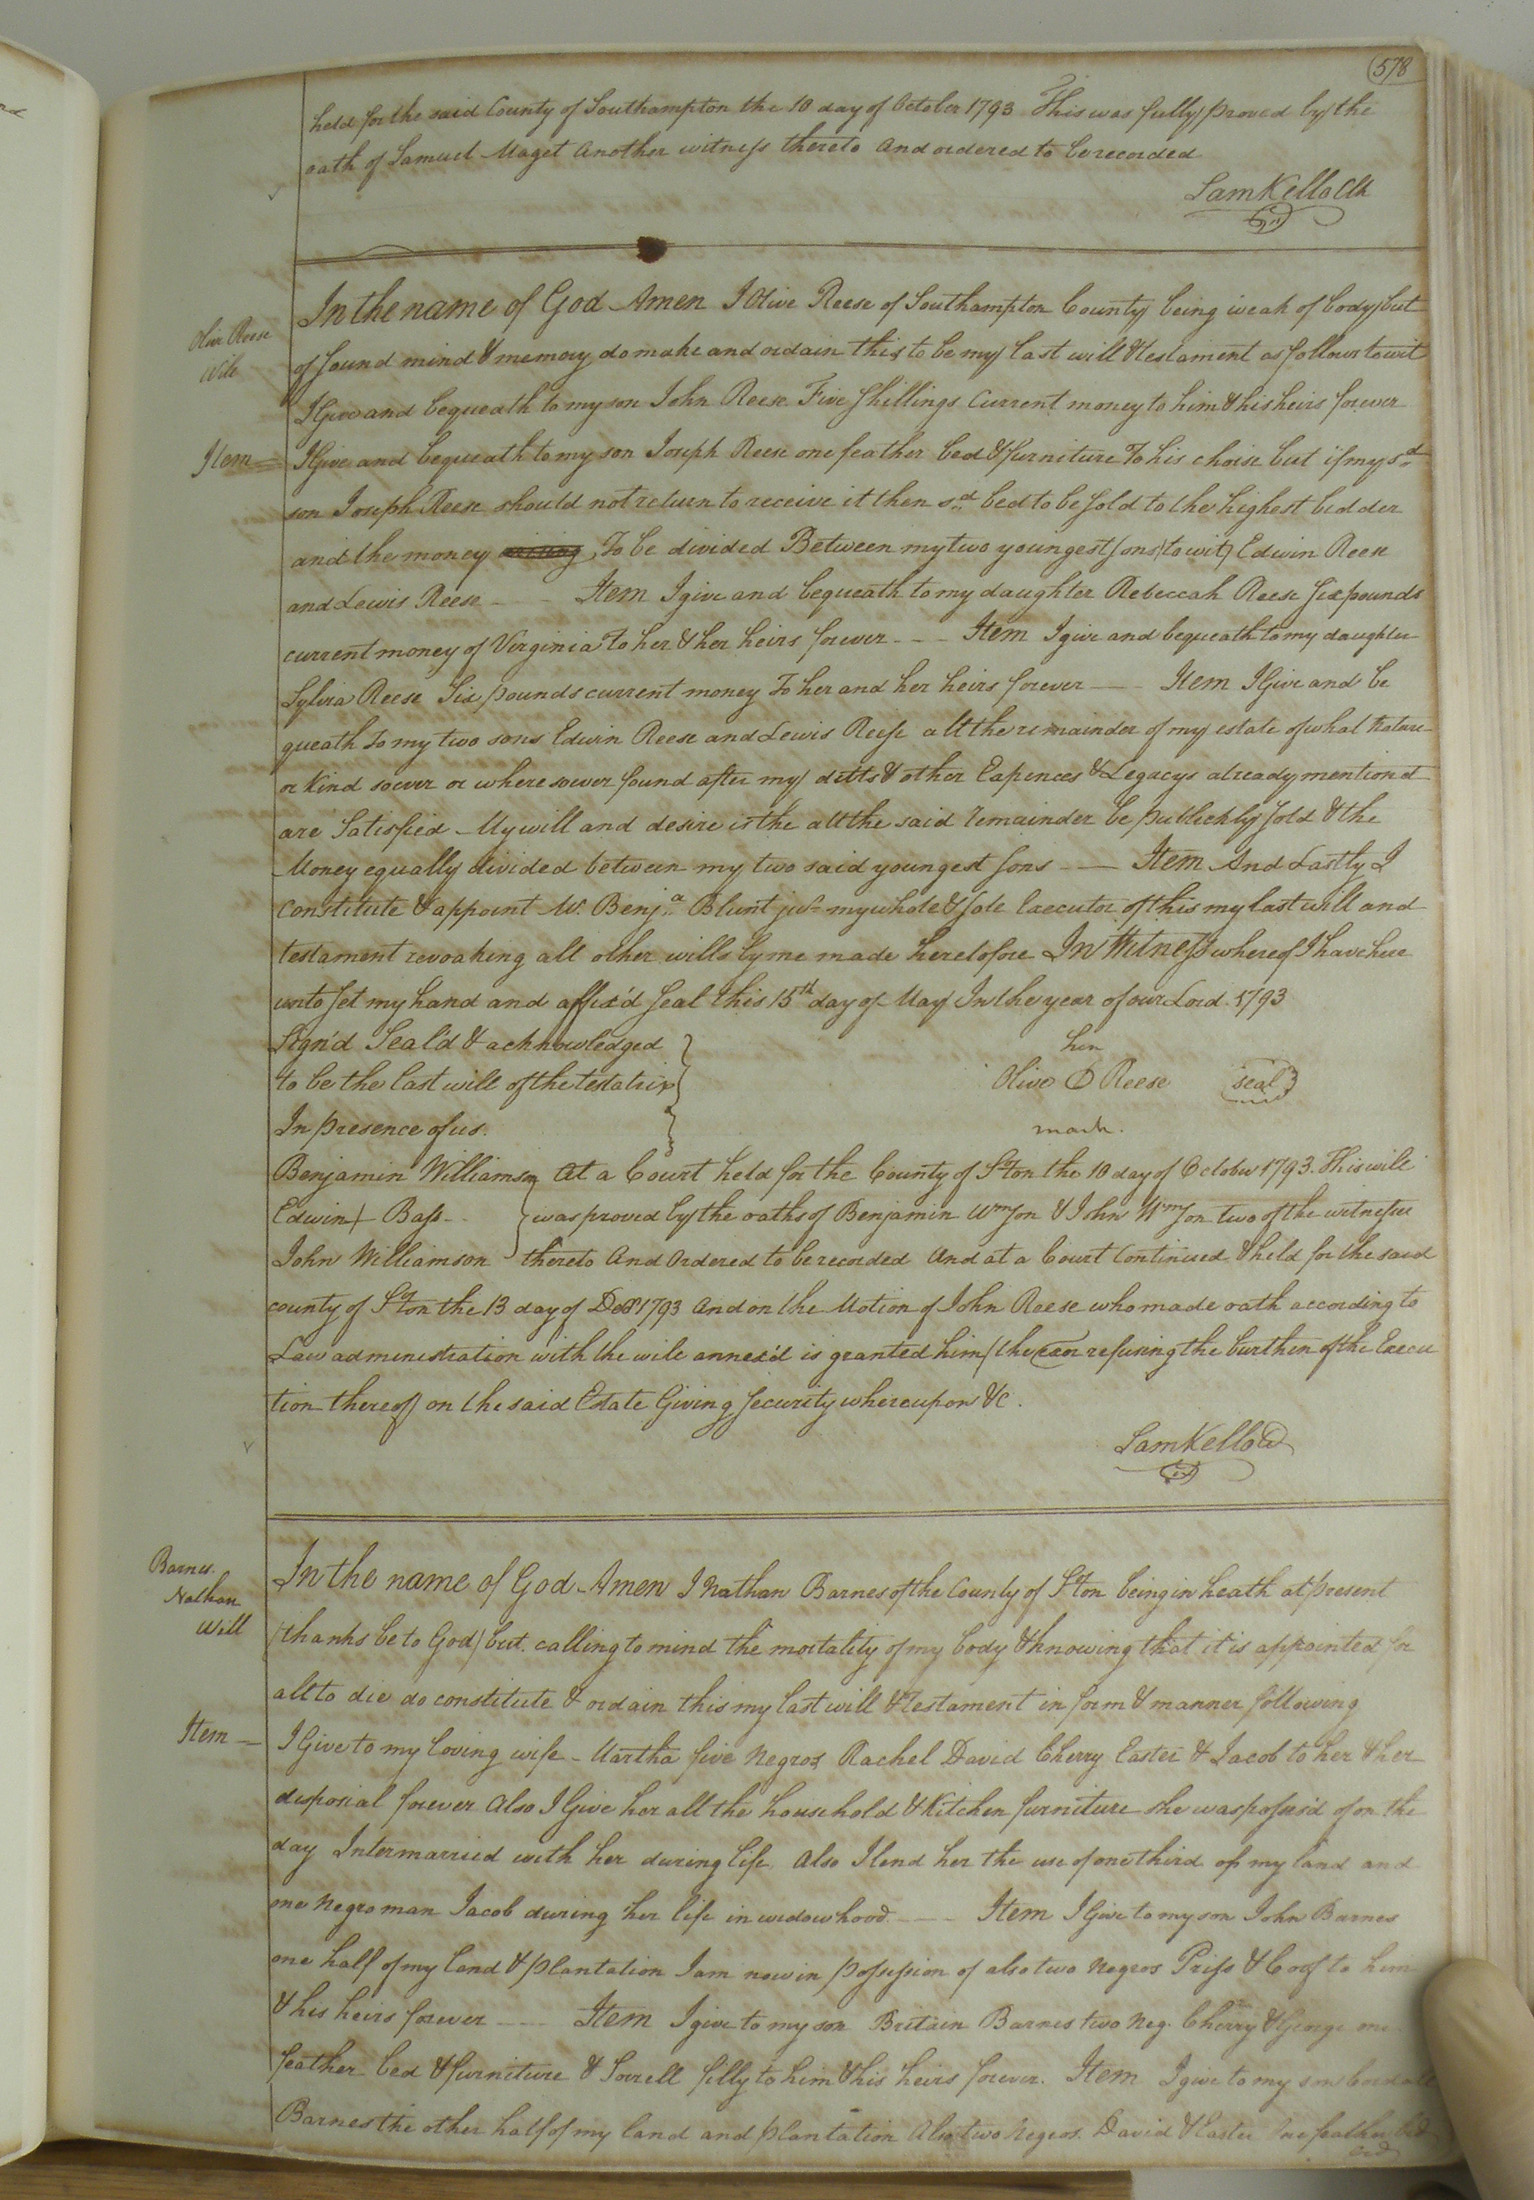 578
held for the said County of Southampton the 10 day of October 1793 This was fully proved by the
oath of Samuel Maget Another witness thereto And ordered to be recorded
Sam Kello Clk
Olive Reese
Will
In the name of God Amen I Olive Reese of Southampton County being weak of body but
of sound mind & memory do make and ordain this to be my last will & testament as follows towit
I Give and bequeath to my son John Reese Five shillings Current money to him & his heirs forever
Item I Give and bequeath to my son Joseph Reese one feather bed & furniture To his choise but if my sd
son Joseph Reese should not return to receive it then sd bed to be sold to the highest bidder
and the money To be divided Between my two youngest sons (towit) Edwin Reese
and Lewis Reese Item I give and bequeath to my daughter Rebeccah Reese six pounds
current money of Virginia To her & her heirs forever Item I give and bequeath to my daughter
Sylvia Reese Six pounds current money To her and her heirs forever Item I Give and be
queath to my two sons Edwin Reese and Lewis Reese all the remainder of my estate of what nature
or kind soever or where soever found after my debts & other Expences & Legacys already mentiond
are Satisfied My will and desire is the all the said remainder be publickly sold & the
Money equally divided between my two said youngest sons Item And Lastly I
Constitute & appoint Mr. Benja. Blunt junr my whole & sole Executor of this my last will and
testament revoaking all other wills by me made heretofore In Witness whereof I have here
unto set my hand and affix'd seal this 15th day of May In the year of our Lord 1793
Sign'd Seal'd & acknowledged her
to be the last will of the testatrix Olive O Reese seal
In presence of us. mark.
Benjamin Williamson At a Court held for the County of Sºton the 10 day of October 1793. This will
Edwin + Bass was proved by the oaths of Benjamin Wmson & John Wmson two of the witnesses
John Williamson thereto And Ordered to be recorded And at a Court Continued & held for the said
county of Sºton the 13 day of Decr 1793 And on the Motion of John Reese who made oath according to
Law administration with the will annex'd is granted him (the exor refusing the burthen of the Execu
tion thereof) on the said Estate Giving security whereupon &c.
Sam Kello Cl
Barnes
Nathan
Will
In the name of God Amen I Nathan Barnes of the County of Sºton being in heath at present
(thanks be to God) but calling to mind the mortality of my body & knowing that it is appointed for
all to die do constitute & ordain this my last will & testament in form & manner following
Item I Give to my loving wife Martha five Negros Rachel David Cherry Easter & Jacob to her & her
disposial forever Also I Give her all the household & Kitchen furniture she was possess'd of on the
day Intermarried with her during life Also I lend her the use of one third of my land and
one Negro man Jacob during her life in widowhood Item I Give to my son John Barnes
one half of my land & plantation I am now in possession of also two Negros Priss & to him
& his heirs forever Item I give to my son Britain Barnes two Neg. Cherry & George one
feather bed & furniture & Sorrell filly to him & his heirs forever. Item I give to my son
Barnes the other half of my land and plantation Also two Negros. David & Easter one feather bed
and